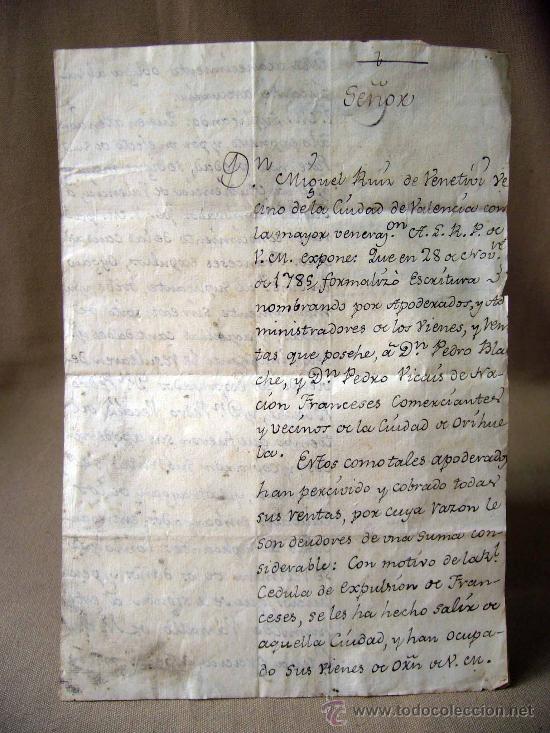 Señor
Dn
Miguel Ruiz de Venetivi ve
cino de la Ciudad de Valencia con
la mayor veneraz.on A. L. R. P. de
V. M. expone: Que en 28 de Nov.e
de 1785 formalizò Escritura
nombrando por Apoderados, y Ad
ministradores de los Vienes, y Ren
tas que posehe, a Dn Pedro Bla
che, y Dn Pedro Vicais de Na
ción Franceses Comerciantes
y vecinos de la Ciudad de Orihue
la. Estos como tales apoderados
han percivido y cobrado todas
sus rentas, por cuya razon le
son deudores de una suma con
siderable: Con motivo de la Rl
Cedula de expulsión de Fran
ceses, se les ha hecho salir de
aquella Ciudad, y han ocupa
do sus vienes de Orñ de V. M.
todocoleccion
www.todocoleccion.net